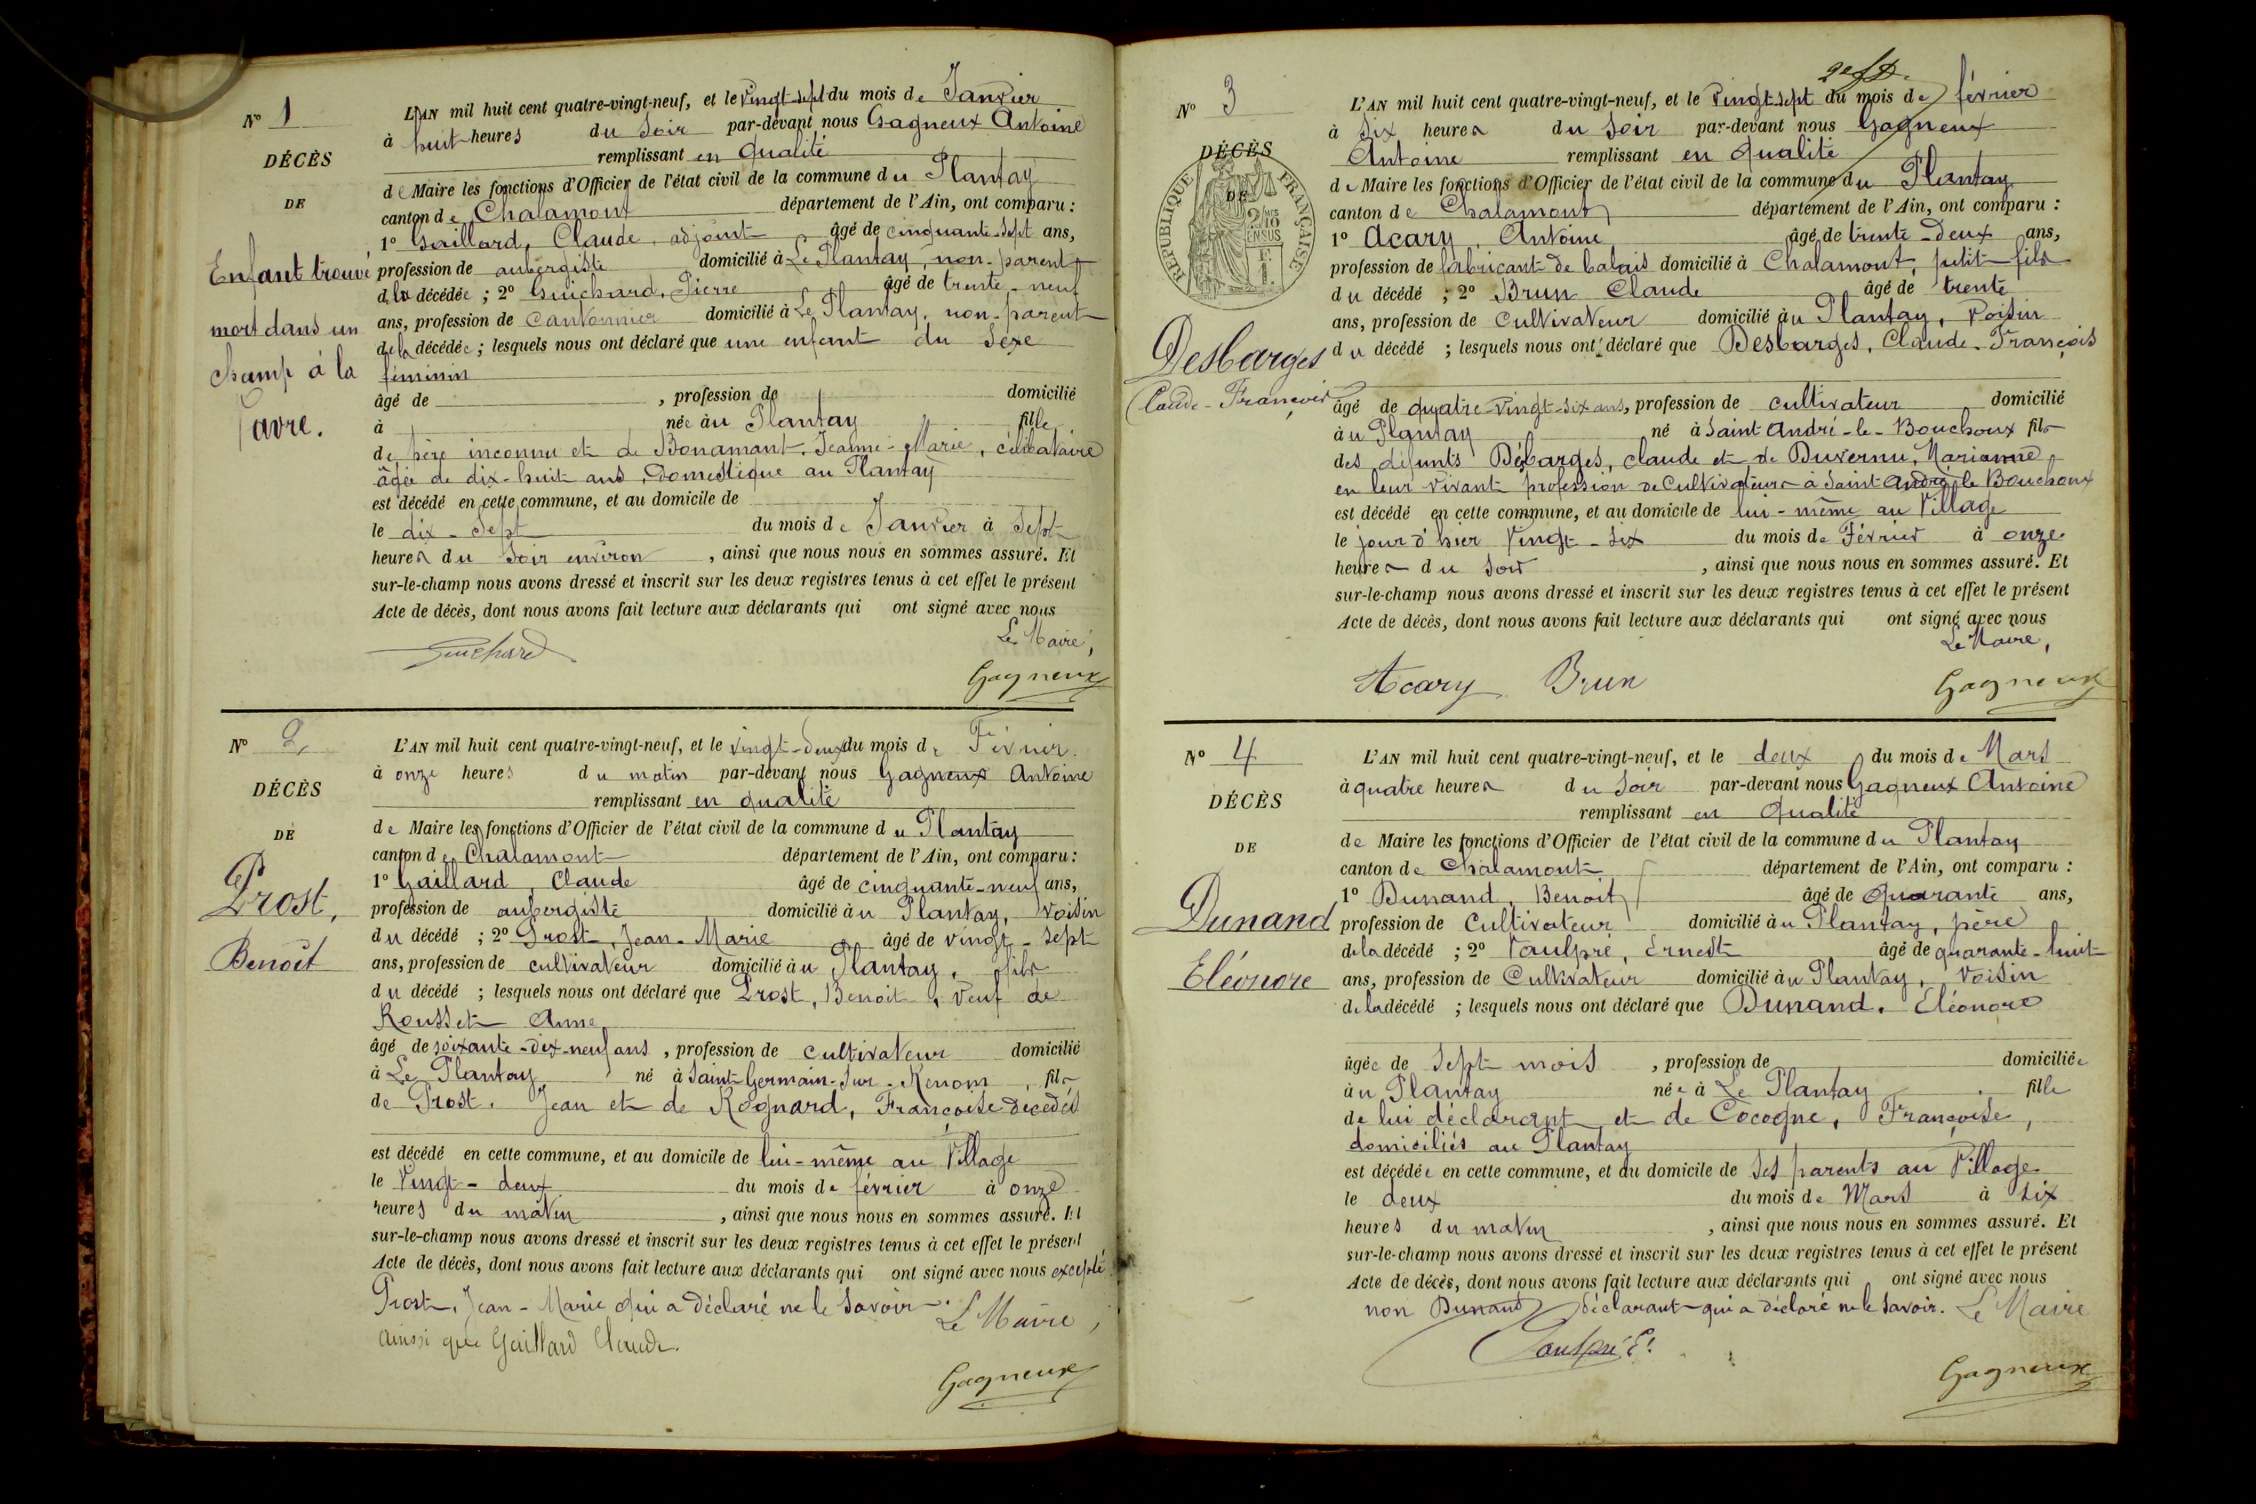 N° 1
DÉCÈS
DE
Enfant trouvé
mort dans un
champ à la
L'AN mil huit cent quatre-vingt-neuf, et le vingt-sept du mois de Janvier
à huit heures du soir par-devant nous Gagneux Antoine
remplissant en qualité
de Maire les fonctions d'Officier de l'état civil de la commune du Plantay
canton de Chalamont département de l'Ain, ont comparu :
1° Gaillard, Claude, adjoint âgé de cinquante-sept ans,
profession de aubergiste domicilié à Le Plantay, non-parent
de la décédée ; 2° Guichard, Pierre âgé de trente-neuf
ans, profession de Cantonnier domicilié à Le Plantay, non-parent
de la décédée ; lesquels nous ont déclaré que une enfant du sexe
féminin
âgé de , profession de domicilié
à née au Plantay fille
de père inconnu et de Bonamant, Jeanne-Marie, célibataire
âgée de dix-huit ans, Domestique au Plantay
est décédé en cette commune, et au domicile de
le dix-sept du mois de Janvier à sept
heures du soir environ , ainsi que nous nous en sommes assuré. Et
sur-le-champ nous avons dressé et inscrit sur les deux registres tenus à cet effet le présent
Acte de décès, dont nous avons fait lecture aux déclarants qui ont signé avec nous
Le Maire,
Guichard
Gagneux
N° 2
DÉCÈS
DE
Prost,
Benoît
L'AN mil huit cent quatre-vingt-neuf, et le vingt-deux du mois de Février
à onze heures du matin par-devant nous Gagneux Antoine
remplissant en qualité
de Maire les fonctions d'Officier de l'état civil de la commune du Plantay
canton de Chalamont département de l'Ain, ont comparu :
1° Gaillard, Claude âgé de cinquante-neuf ans,
profession de aubergiste domicilié au Plantay, voisin
du décédé ; 2° Prost, Jean-Marie âgé de vingt-sept
ans, profession de cultivateur domicilié au Plantay, fils
du décédé ; lesquels nous ont déclaré que Prost, Benoit, veuf de
Rousset Anne
âgé de soixante-dix-neuf ans , profession de cultivateur domicilié
à Le Plantay né à Saint-Germain-sur-Renom, fils
de Prost, Jean et de Rognard, Françoise décédés
est décédé en cette commune, et au domicile de lui-même au Village
le vingt-deux du mois de février à onze
heures du matin , ainsi que nous nous en sommes assuré. Et
sur-le-champ nous avons dressé et inscrit sur les deux registres tenus à cet effet le présent
Acte de décès, dont nous avons fait lecture aux déclarants qui ont signé avec nous excepté
Prost, Jean-Marie qui a déclaré ne le savoir
ainsi que Gaillard Claude.
Le Maire,
Gagneux
N° 3
DÉCÈS
DE
RÉPUBLIQUE FRANÇAISE
Desbarges
Claude-François
L'AN mil huit cent quatre-vingt-neuf, et le vingt-sept du mois de février
à six heures du soir par-devant nous Gagneux
Antoine remplissant en qualité
de Maire les fonctions d'Officier de l'état civil de la commune du Plantay
canton de Chalamont département de l'Ain, ont comparu :
1° Acary, Antoine âgé de trente-deux ans,
profession de fabricant de balais domicilié à Chalamont, petit-fils
du décédé ; 2° Brun Claude âgé de trente
ans, profession de Cultivateur domicilié au Plantay, voisin
du décédé ; lesquels nous ont déclaré que Desbarges, Claude-François
âgé de quatre-vingt-six ans, profession de cultivateur domicilié
au Plantay né à Saint André-le-Bouchoux fils
des défunts Débarges, Claude et de Duvernu, Marianne
en leur vivant profession de Cultivateurs à Saint André le Bouchoux
est décédé en cette commune, et au domicile de lui-même au Village
le jour d'hier vingt-six du mois de Février à onze
heures du soir , ainsi que nous nous en sommes assuré. Et
sur-le-champ nous avons dressé et inscrit sur les deux registres tenus à cet effet le présent
Acte de décès, dont nous avons fait lecture aux déclarants qui ont signé avec nous
Le Maire,
Acary Brun
Gagneux
N° 4
DÉCÈS
DE
Dunand
Eléonore
L'AN mil huit cent quatre-vingt-neuf, et le deux du mois de Mars
à quatre heures du soir par-devant nous Gagneux Antoine
remplissant en qualité
de Maire les fonctions d'Officier de l'état civil de la commune du Plantay
canton de Chalamont département de l'Ain, ont comparu :
1° Dunand, Benoit âgé de quarante ans,
profession de Cultivateur domicilié au Plantay, père
de la décédé ; 2° Vaulpré, Ernest âgé de quarante-huit
ans, profession de Cultivateur domicilié au Plantay, voisin
de la décédé ; lesquels nous ont déclaré que Dunand, Eléonore
âgée de sept mois , profession de domiciliée
au Plantay née à Le Plantay fille
de lui déclarant et de Cocogne, Françoise,
domiciliés au Plantay
est décédée en cette commune, et au domicile de ses parents au Village
le deux du mois de Mars à six
heures du matin , ainsi que nous nous en sommes assuré. Et
sur-le-champ nous avons dressé et inscrit sur les deux registres tenus à cet effet le présent
Acte de décès, dont nous avons fait lecture aux déclarants qui ont signé avec nous
non Dunand déclarant qui a déclaré ne le savoir. Le Maire
Vaulpré E.
Gagneux